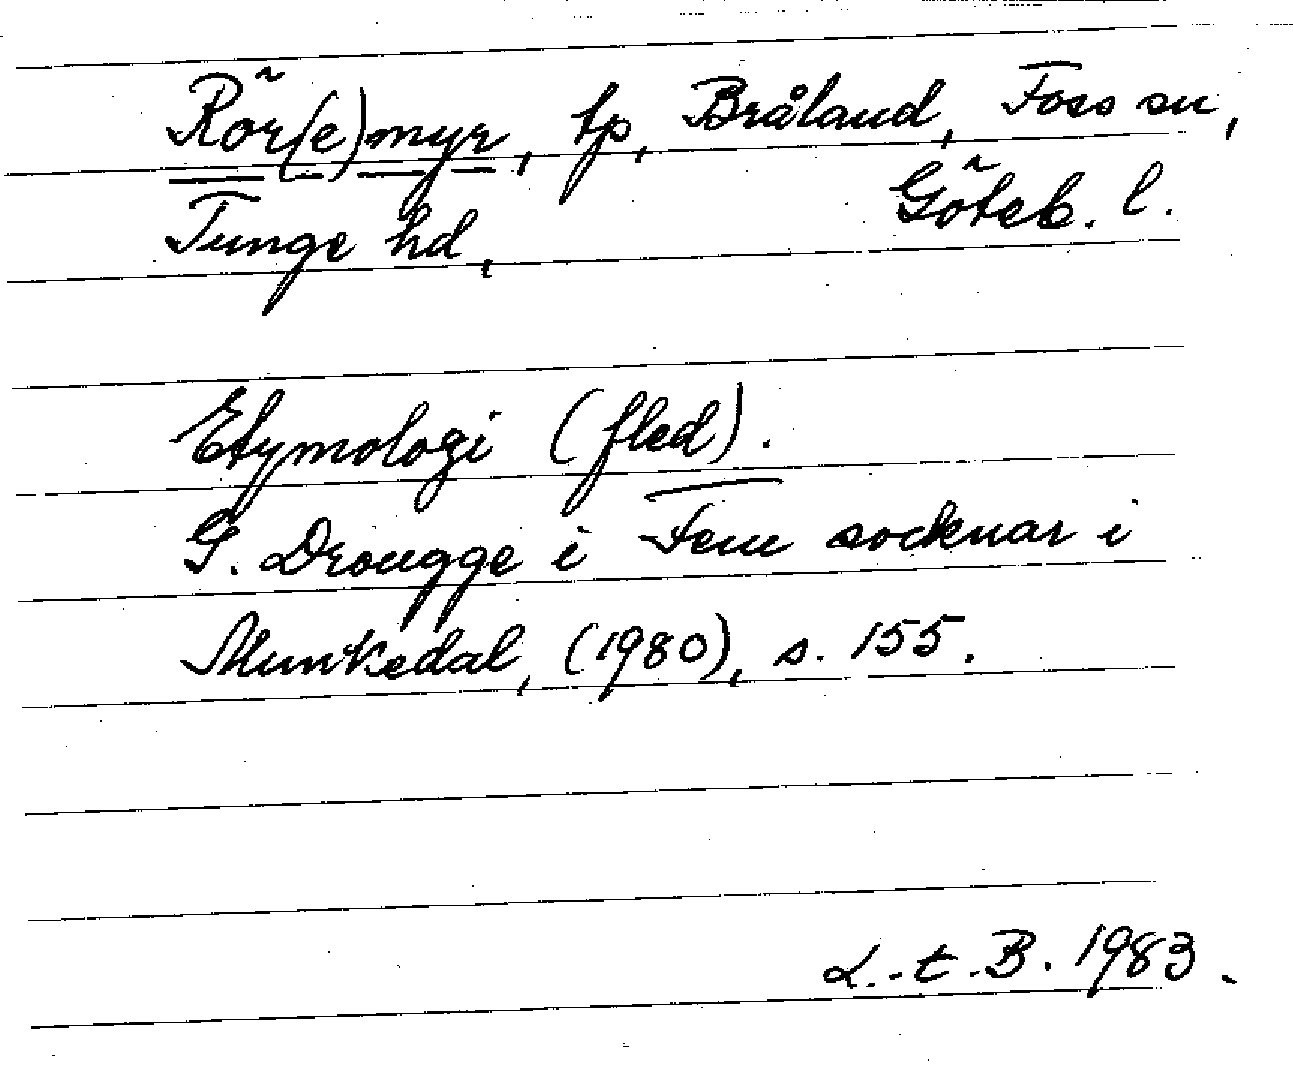 Rör(e)myr, tp, Bråland, Foss sn,
Tunge hd, Göteb. l.
Etymologi (fled).
G. Drougge i Fem socknar i
Munkedal, (1980), s. 155.
L.-t. B. 1983.